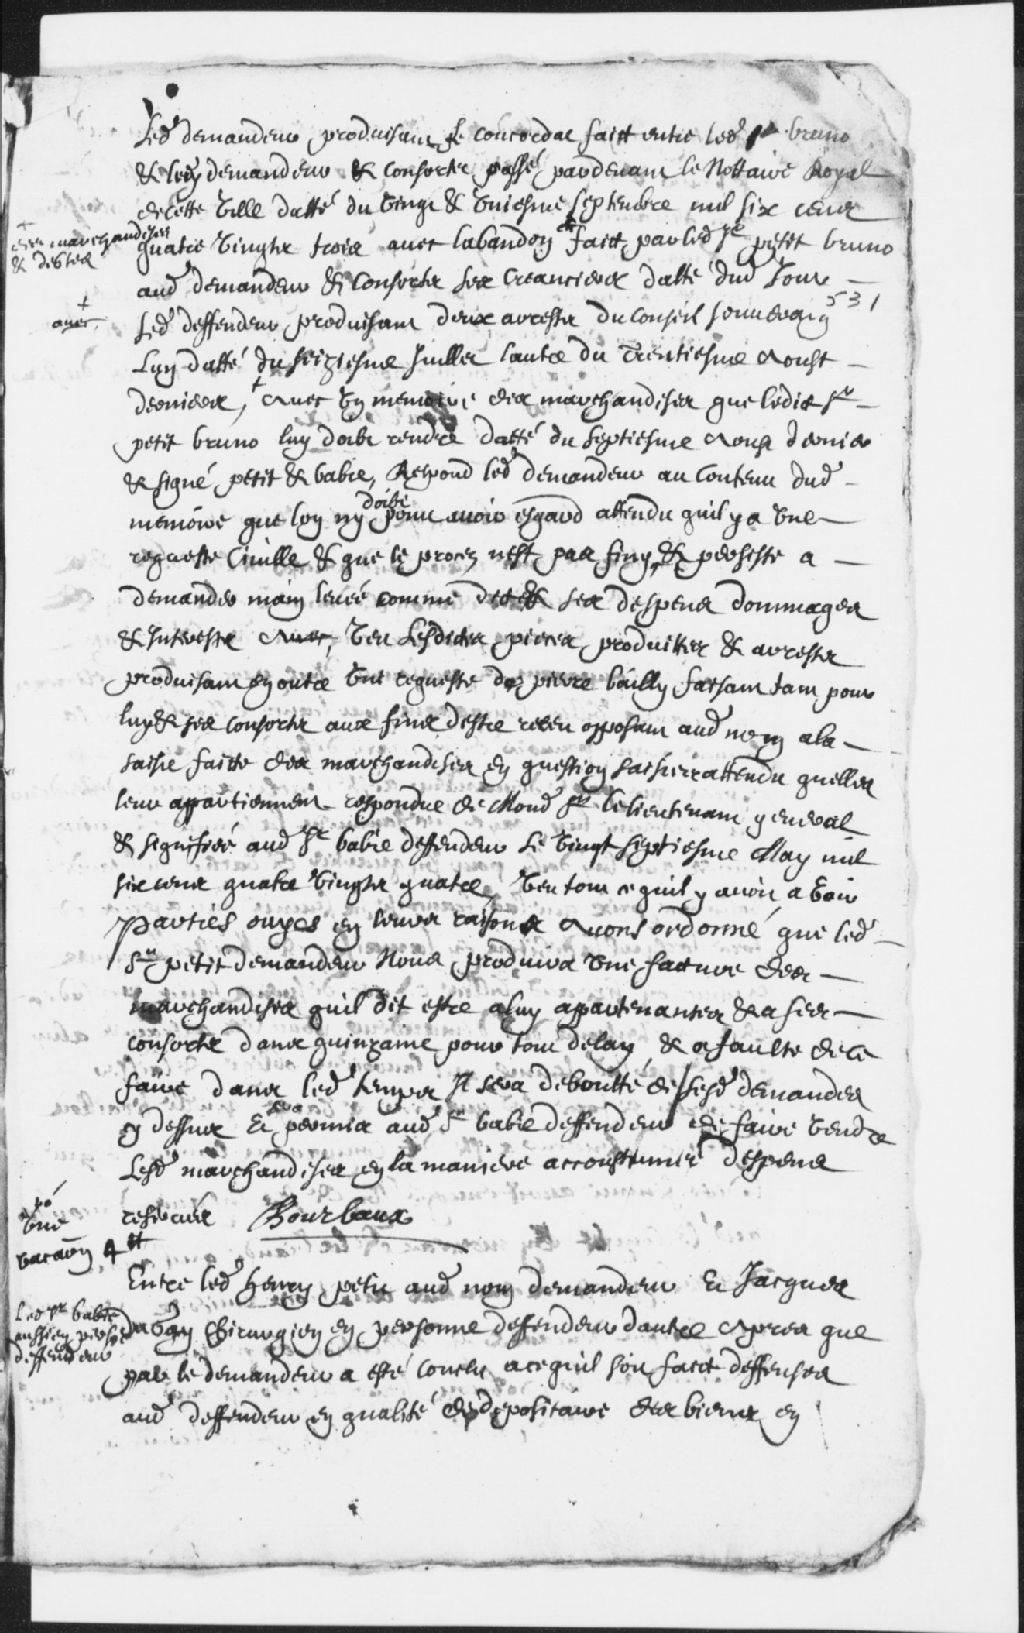 Led demandeur produisant le concordat faict entre led Sr bruno
& led demandeur & consortz passé pardevant le Nottaire Royal
de cette Ville datté du vingt & uniesme septembre mil six cens
quatre vinghtz trois avec labandon + faict par led Sr petit bruno
+ des marchandises
& debtes
aud demandeur & consortz ses creanciers datté dud jour
531
+
avec
Led deffendeur produisant deux arrestz du Conseil souverain
Lun datté du seiziesme juillet lautre du trentiesme Aoust
derniers, + Avec un memoire des marchandises que ledict Sr
petit bruno luy doibt rendre datté du septiesme Aoust dernier
& signé petit & babie, Respond led demandeur au contenu dud
memoire que lon ny doibt point avoir esgard attendu quil y a une
requeste Civille & que le procez nest pas finy, & persiste a
demander main levée comme dict & ses despens dommages
& Interestz Avec, Veu Lesdictes pieces produittes & arrestz
produisant en outre une requeste de pierre bailly faisant tant pour
luy & ses consortz aux fins destre receu opposant aud nom a la
saisie faitte des marchandises en question saisies attendu quelles
leur appartiennent respondue de Mond Sr le lieutenant general
& signiffiée aud Sr babie deffendeur Le vingt septiesme May mil
six cens quatre vinghtz quatre, Veu tout ce quil y avoit a voir
Parties ouyes en leurs raisons Avons ordonné que led
Sr petit demandeur Nous produira une facture des
marchandises quil dit estre a luy appartenantes & a ses
consortz dans quinzaine pour tout delay, & a faulte de ce
faire dans led temps Il sera deboutté de sesd demandes
cy dessus Et sera permis aud Sr babie deffendeur de faire vendre
Lesd marchandises en la maniere accoustumée despens
reservés Bourbaux
po
une
vacaon 4 tt
Entre led Henry petit aud nom demandeur Et Jacques
Led Sr babie
aussi en persone
deffendeur
Chirurgien en personne deffendeur dautre Apres que
par le demandeur a esté conclu a ce quil soit faict deffenses
aud deffendeur en qualité de depositaire des biens en